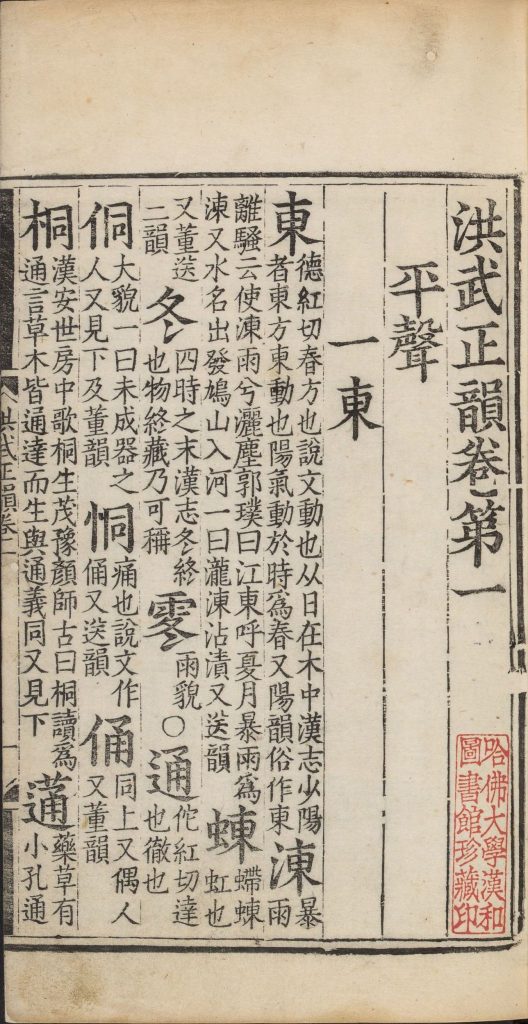 洪武正韻卷第一
哈佛大學漢和
圖書館珍藏印
平聲
一東
東德紅切春方也說文動也从日在木中漢志少陽者東方東動也陽氣動於時爲春又陽韻俗作東涷暴雨
離騷云使涷雨兮灑塵郭璞曰江東呼夏月暴雨爲涷又水名出發鳩山入河一曰瀧涷沾漬又送韻蝀螮蝀虹也
又董送二韻冬四時之末漢志冬終也物終藏乃可稱䨦雨貌〇通佗紅切達也徹也
侗大貌一曰未成器之人又見下及董韻恫痛也說文作俑又送韻俑同上又偶人又董韻
桐漢安世房中歌桐生茂豫顏師古曰桐讀爲通言草木皆通達而生與通義同又見下蓪藥草有小孔通
洪武正韻卷一